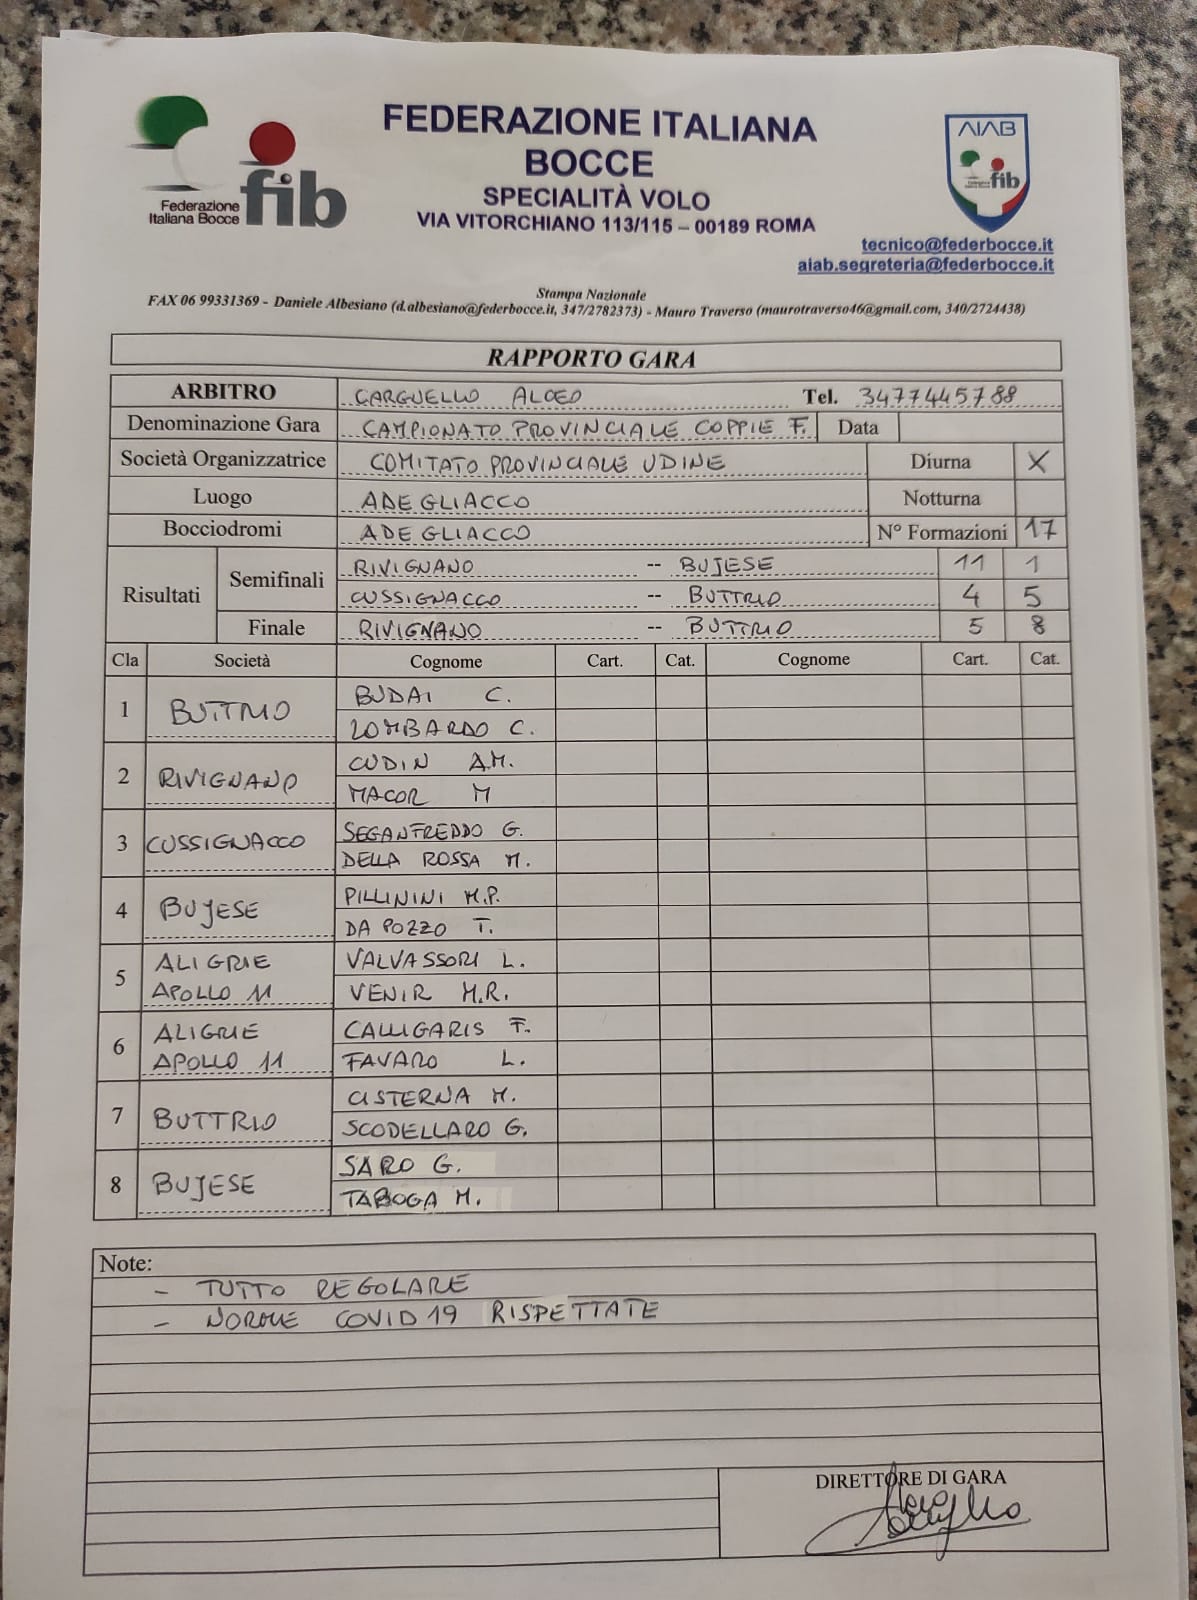 Federazione
Italiana Bocce
fib
FEDERAZIONE ITALIANA
BOCCE
SPECIALITÀ VOLO
VIA VITORCHIANO 113/115 – 00189 ROMA
AIAB
fib
tecnico@federbocce.it
aiab.segreteria@federbocce.it
Stampa Nazionale
FAX 06 99331369 - Daniele Albesiano (d.albesiano@federbocce.it, 347/2782373) - Mauro Traverso (maurotraverso46@gmail.com, 340/2724438)
RAPPORTO GARA
ARBITRO CARGUELLO ALCEO Tel. 3477445788
Denominazione Gara CAMPIONATO PROVINCIALE COPPIE F. Data
Società Organizzatrice COMITATO PROVINCIALE UDINE Diurna X
Luogo ADEGLIACCO Notturna
Bocciodromi ADEGLIACCO N° Formazioni 17
Risultati Semifinali RIVIGNANO -- BUJESE 11 1
CUSSIGNACCO -- BUTTRIO 4 5
Finale RIVIGNANO -- BUTTRIO 5 8
Cla Società Cognome Cart. Cat. Cognome Cart. Cat.
1 BUTTRIO BUDAI C.
LOMBARDO C.
2 RIVIGNANO CUDIN A.M.
MACOR M
3 CUSSIGNACCO SEGANFREDDO G.
DELLA ROSSA M.
4 BUJESE PILLININI M.P.
DA POZZO T.
5 ALIGRIE VALVASSORI L.
APOLLO 11 VENIR M.R.
6 ALIGRIE CALLIGARIS F.
APOLLO 11 FAVARO L.
7 BUTTRIO CISTERNA M.
SCODELLARO G.
8 BUJESE SARO G.
TABOGA M.
Note:
- TUTTO REGOLARE
- NORME COVID 19 RISPETTATE
DIRETTORE DI GARA